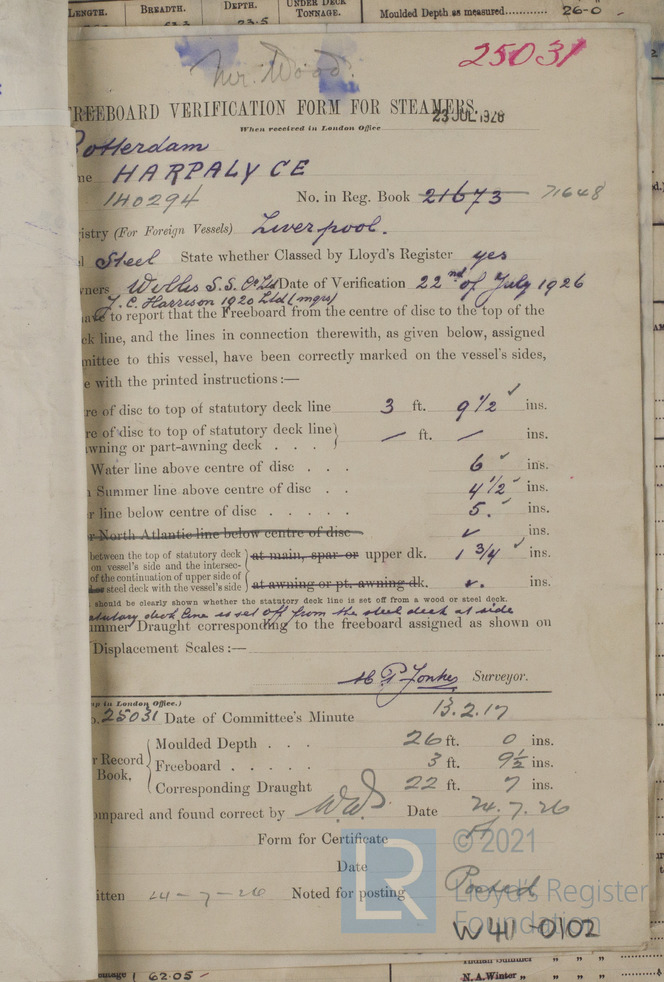 LENGTH. BREADTH. DEPTH. UNDER DECK TONNAGE. Moulded Depth as measured............ 26-0
23.5
Mr. Wood. 25031
REEBOARD VERIFICATION FORM FOR STEAMERS.
23 JUL 1926
When received in London Office
Rotterdam
ne HARPALYCE
140294 No. in Reg. Book 21673 71648
istry (For Foreign Vessels) Liverpool.
Steel State whether Classed by Lloyd's Register yes
ners Willis S.S. Co Ltd Date of Verification 22nd of July 1926
J. C. Harrison 1920 Ltd (mgrs)
have to report that the Freeboard from the centre of disc to the top of the
ck line, and the lines in connection therewith, as given below, assigned
mittee to this vessel, have been correctly marked on the vessel's sides,
e with the printed instructions:—
re of disc to top of statutory deck line 3 ft. 9 1/2 ins.
re of disc to top of statutory deck line
wning or part-awning deck . . . — ft. — ins.
Water line above centre of disc . . . 6 ins.
Summer line above centre of disc . . 4 1/2 ins.
r line below centre of disc . . . . . 5. ins.
r North Atlantic line below centre of disc ins.
between the top of statutory deck
on vessel's side and the intersec- at main, spar or upper dk. 1 3/4 ins.
of the continuation of upper side of
steel deck with the vessel's side at awning or pt. awning dk. ins.
should be clearly shown whether the statutory deck line is set off from a wood or steel deck.
atutory deck line is set off from the steel deck at side
ummer Draught corresponding to the freeboard assigned as shown on
Displacement Scales:—
Surveyor.
p in London Office.)
o. 25031 Date of Committee's Minute 13.2.17
Moulded Depth . . . 26 ft. 0 ins.
r Record Book, Freeboard . . . . . 3 ft. 9½ ins.
Corresponding Draught 22 ft. 7 ins.
ompared and found correct by Date 24.7.26
Form for Certificate
© 2021
Date
itten 24-7-26 Noted for posting Posted
LR Lloyd's Register Foundation
W41-0102
Indian Summer " " "
entage 62.05 N.A. Winter " " "